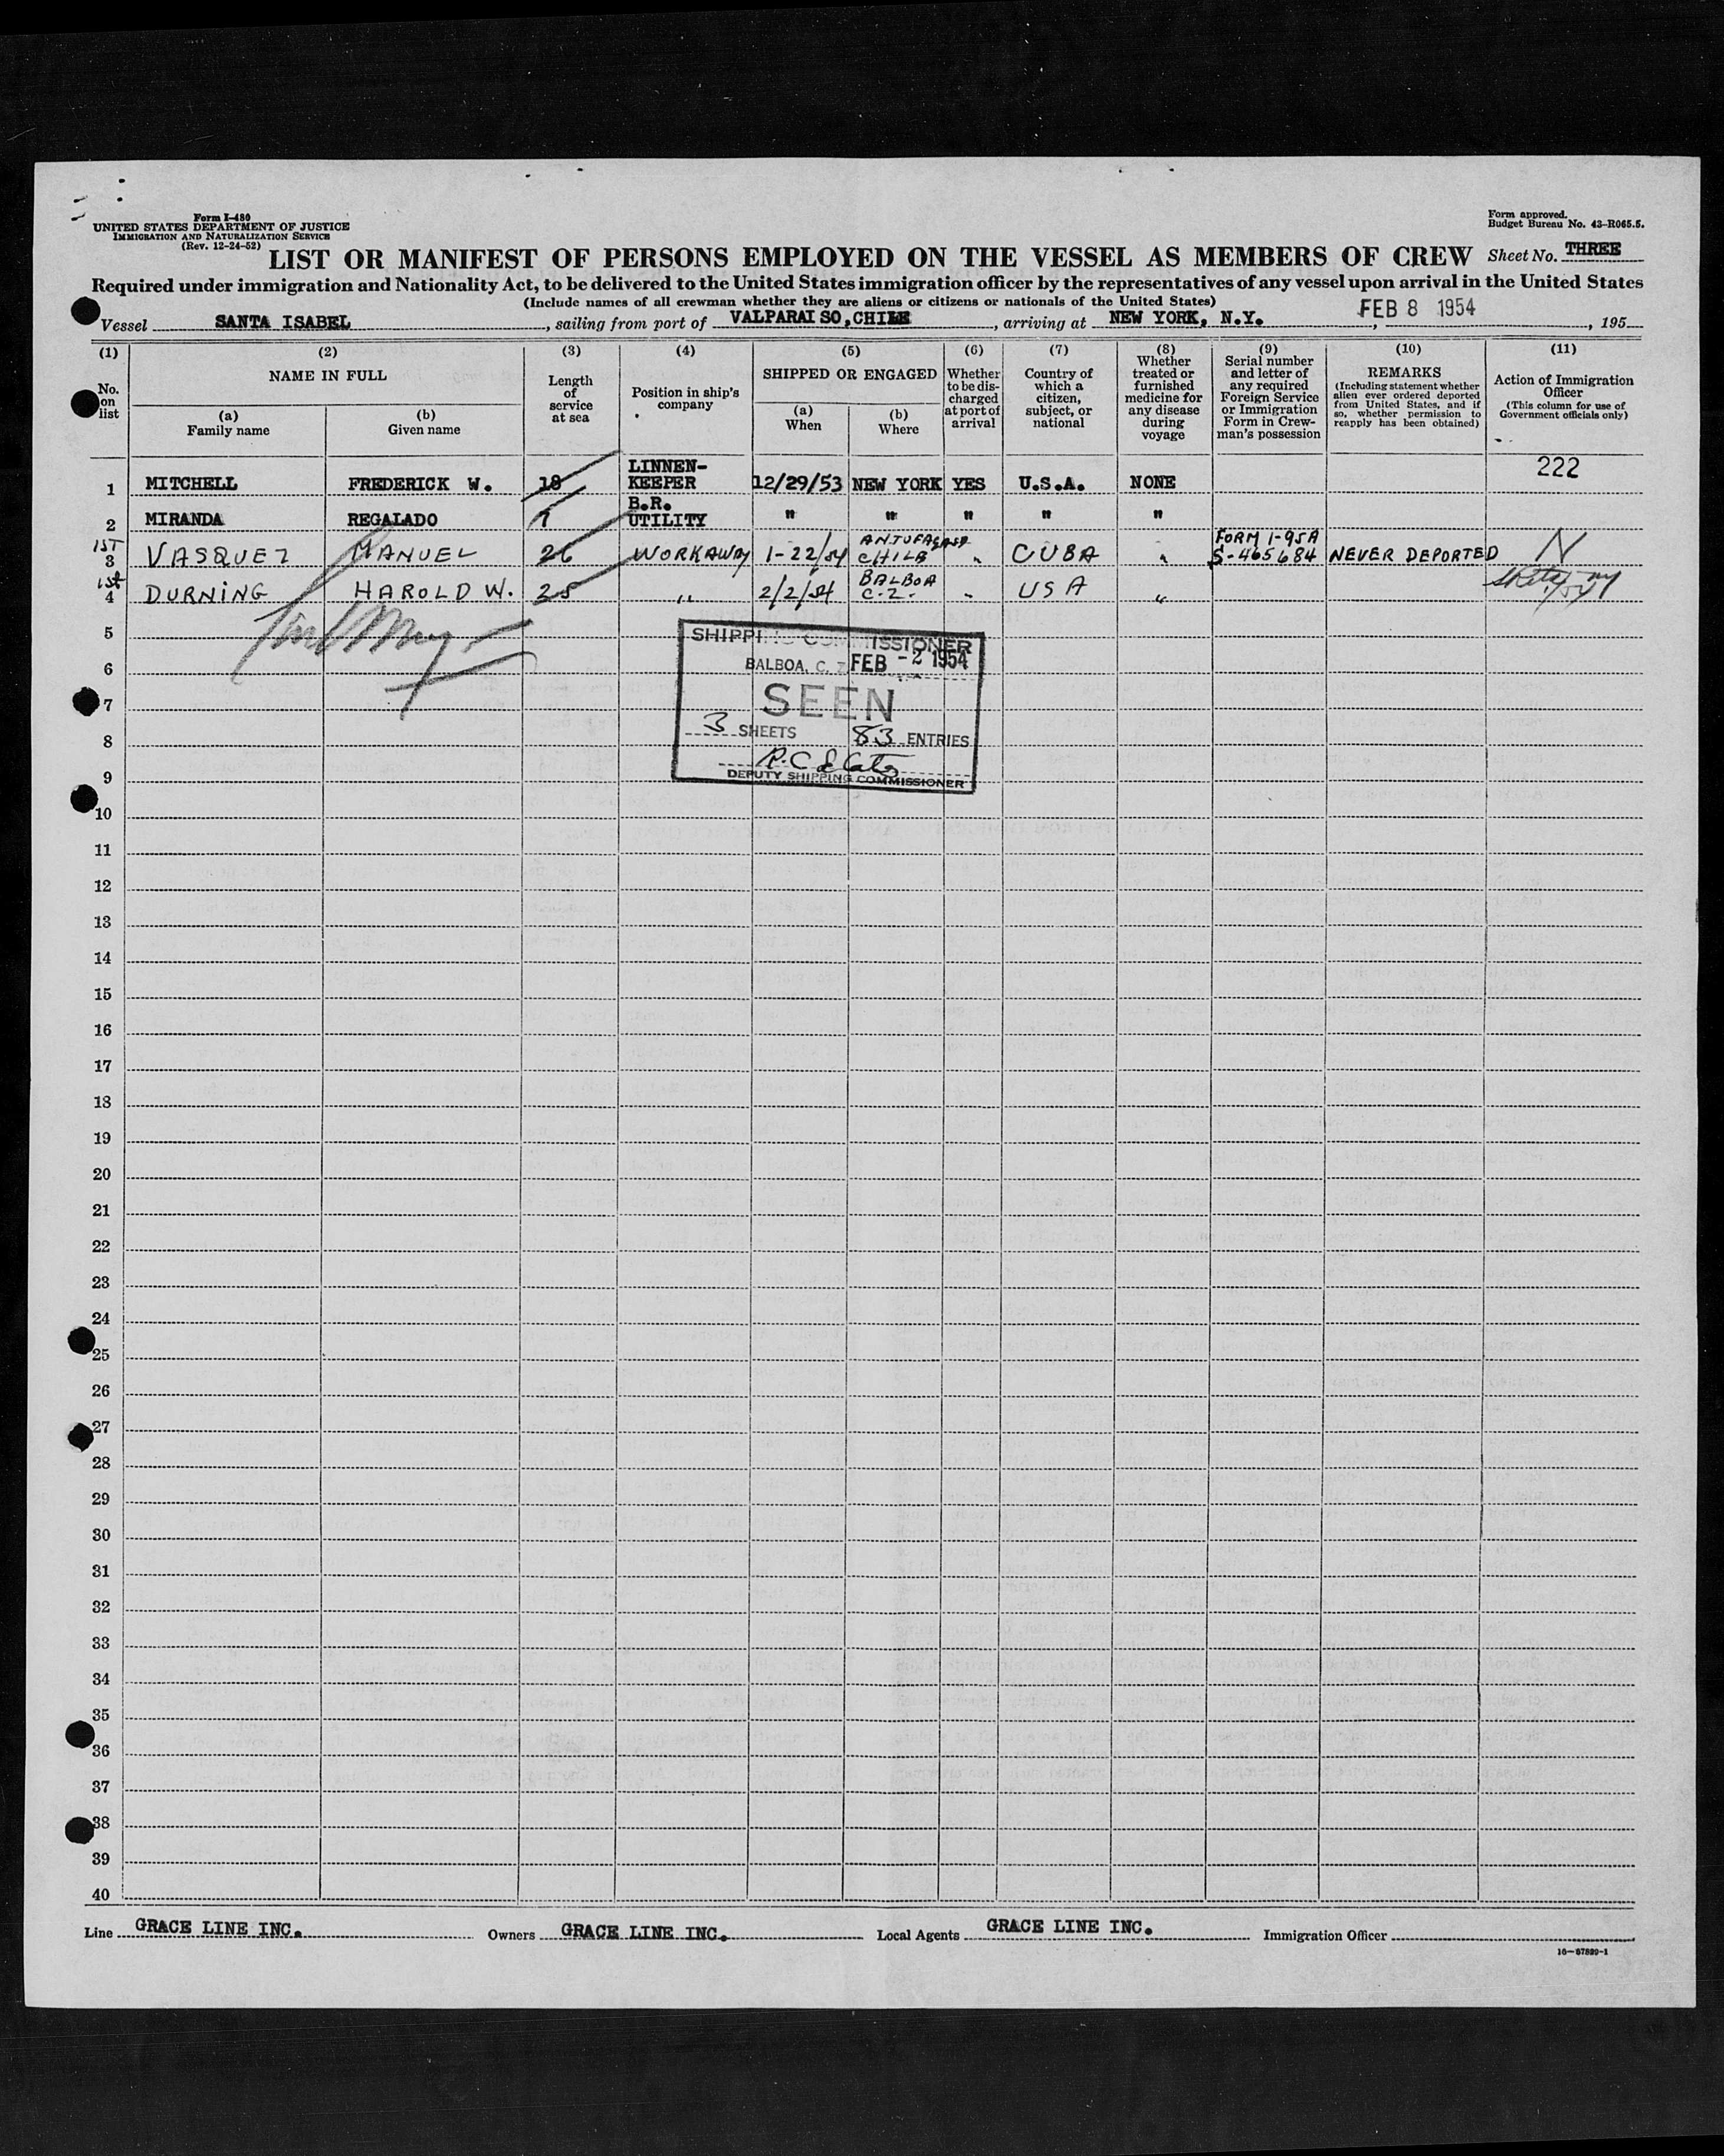 Form I-480
UNITED STATES DEPARTMENT OF JUSTICE
IMMIGRATION AND NATURALIZATION SERVICE
(Rev. 12-24-52)
Form approved.
Budget Bureau No. 43-R065.5.
LIST OR MANIFEST OF PERSONS EMPLOYED ON THE VESSEL AS MEMBERS OF CREW Sheet No. THREE
Required under immigration and Nationality Act, to be delivered to the United States immigration officer by the representatives of any vessel upon arrival in the United States
(Include names of all crewman whether they are aliens or citizens or nationals of the United States)
Vessel SANTA ISABEL, sailing from port of VALPARAISO, CHILE, arriving at NEW YORK, N.Y. FEB 8 1954, 195
(1) (2) (3) (4) (5) (6) (7) (8) (9) (10) (11)
No. on list
NAME IN FULL
(a) Family name
(b) Given name
Length of service at sea
Position in ship's company
SHIPPED OR ENGAGED
(a) When
(b) Where
Whether to be discharged at port of arrival
Country of which a citizen, subject, or national
Whether treated or furnished medicine for any disease during voyage
Serial number and letter of any required Foreign Service or Immigration Form in Crewman's possession
REMARKS
(Including statement whether alien ever ordered deported from United States, and if so, whether permission to reapply has been obtained)
Action of Immigration Officer
(This column for use of Government officials only)
222
1 MITCHELL FREDERICK W. 18 LINNEN-KEEPER 12/29/53 NEW YORK YES U.S.A. NONE
2 MIRANDA REGALADO 7 B.R. UTILITY " " " " "
1ST 3 VASQUEZ MANUEL 26 WORKAWAY 1-22/54 CHILE " CUBA " FORM 1-95A S-465684 NEVER DEPORTED N
1st 4 DURNING HAROLD W. 25 " 2/2/54 BALBOA C.Z. " USA "
5
6
7
8
9
10
11
12
13
14
15
16
17
18
19
20
21
22
23
24
25
26
27
28
29
30
31
32
33
34
35
36
37
38
39
40
SHIPPING COMMISSIONER
BALBOA, C. Z. FEB -2 1954
SEEN
3 SHEETS 83 ENTRIES
DEPUTY SHIPPING COMMISSIONER
Line GRACE LINE INC. Owners GRACE LINE INC. Local Agents GRACE LINE INC. Immigration Officer
16-67829-1